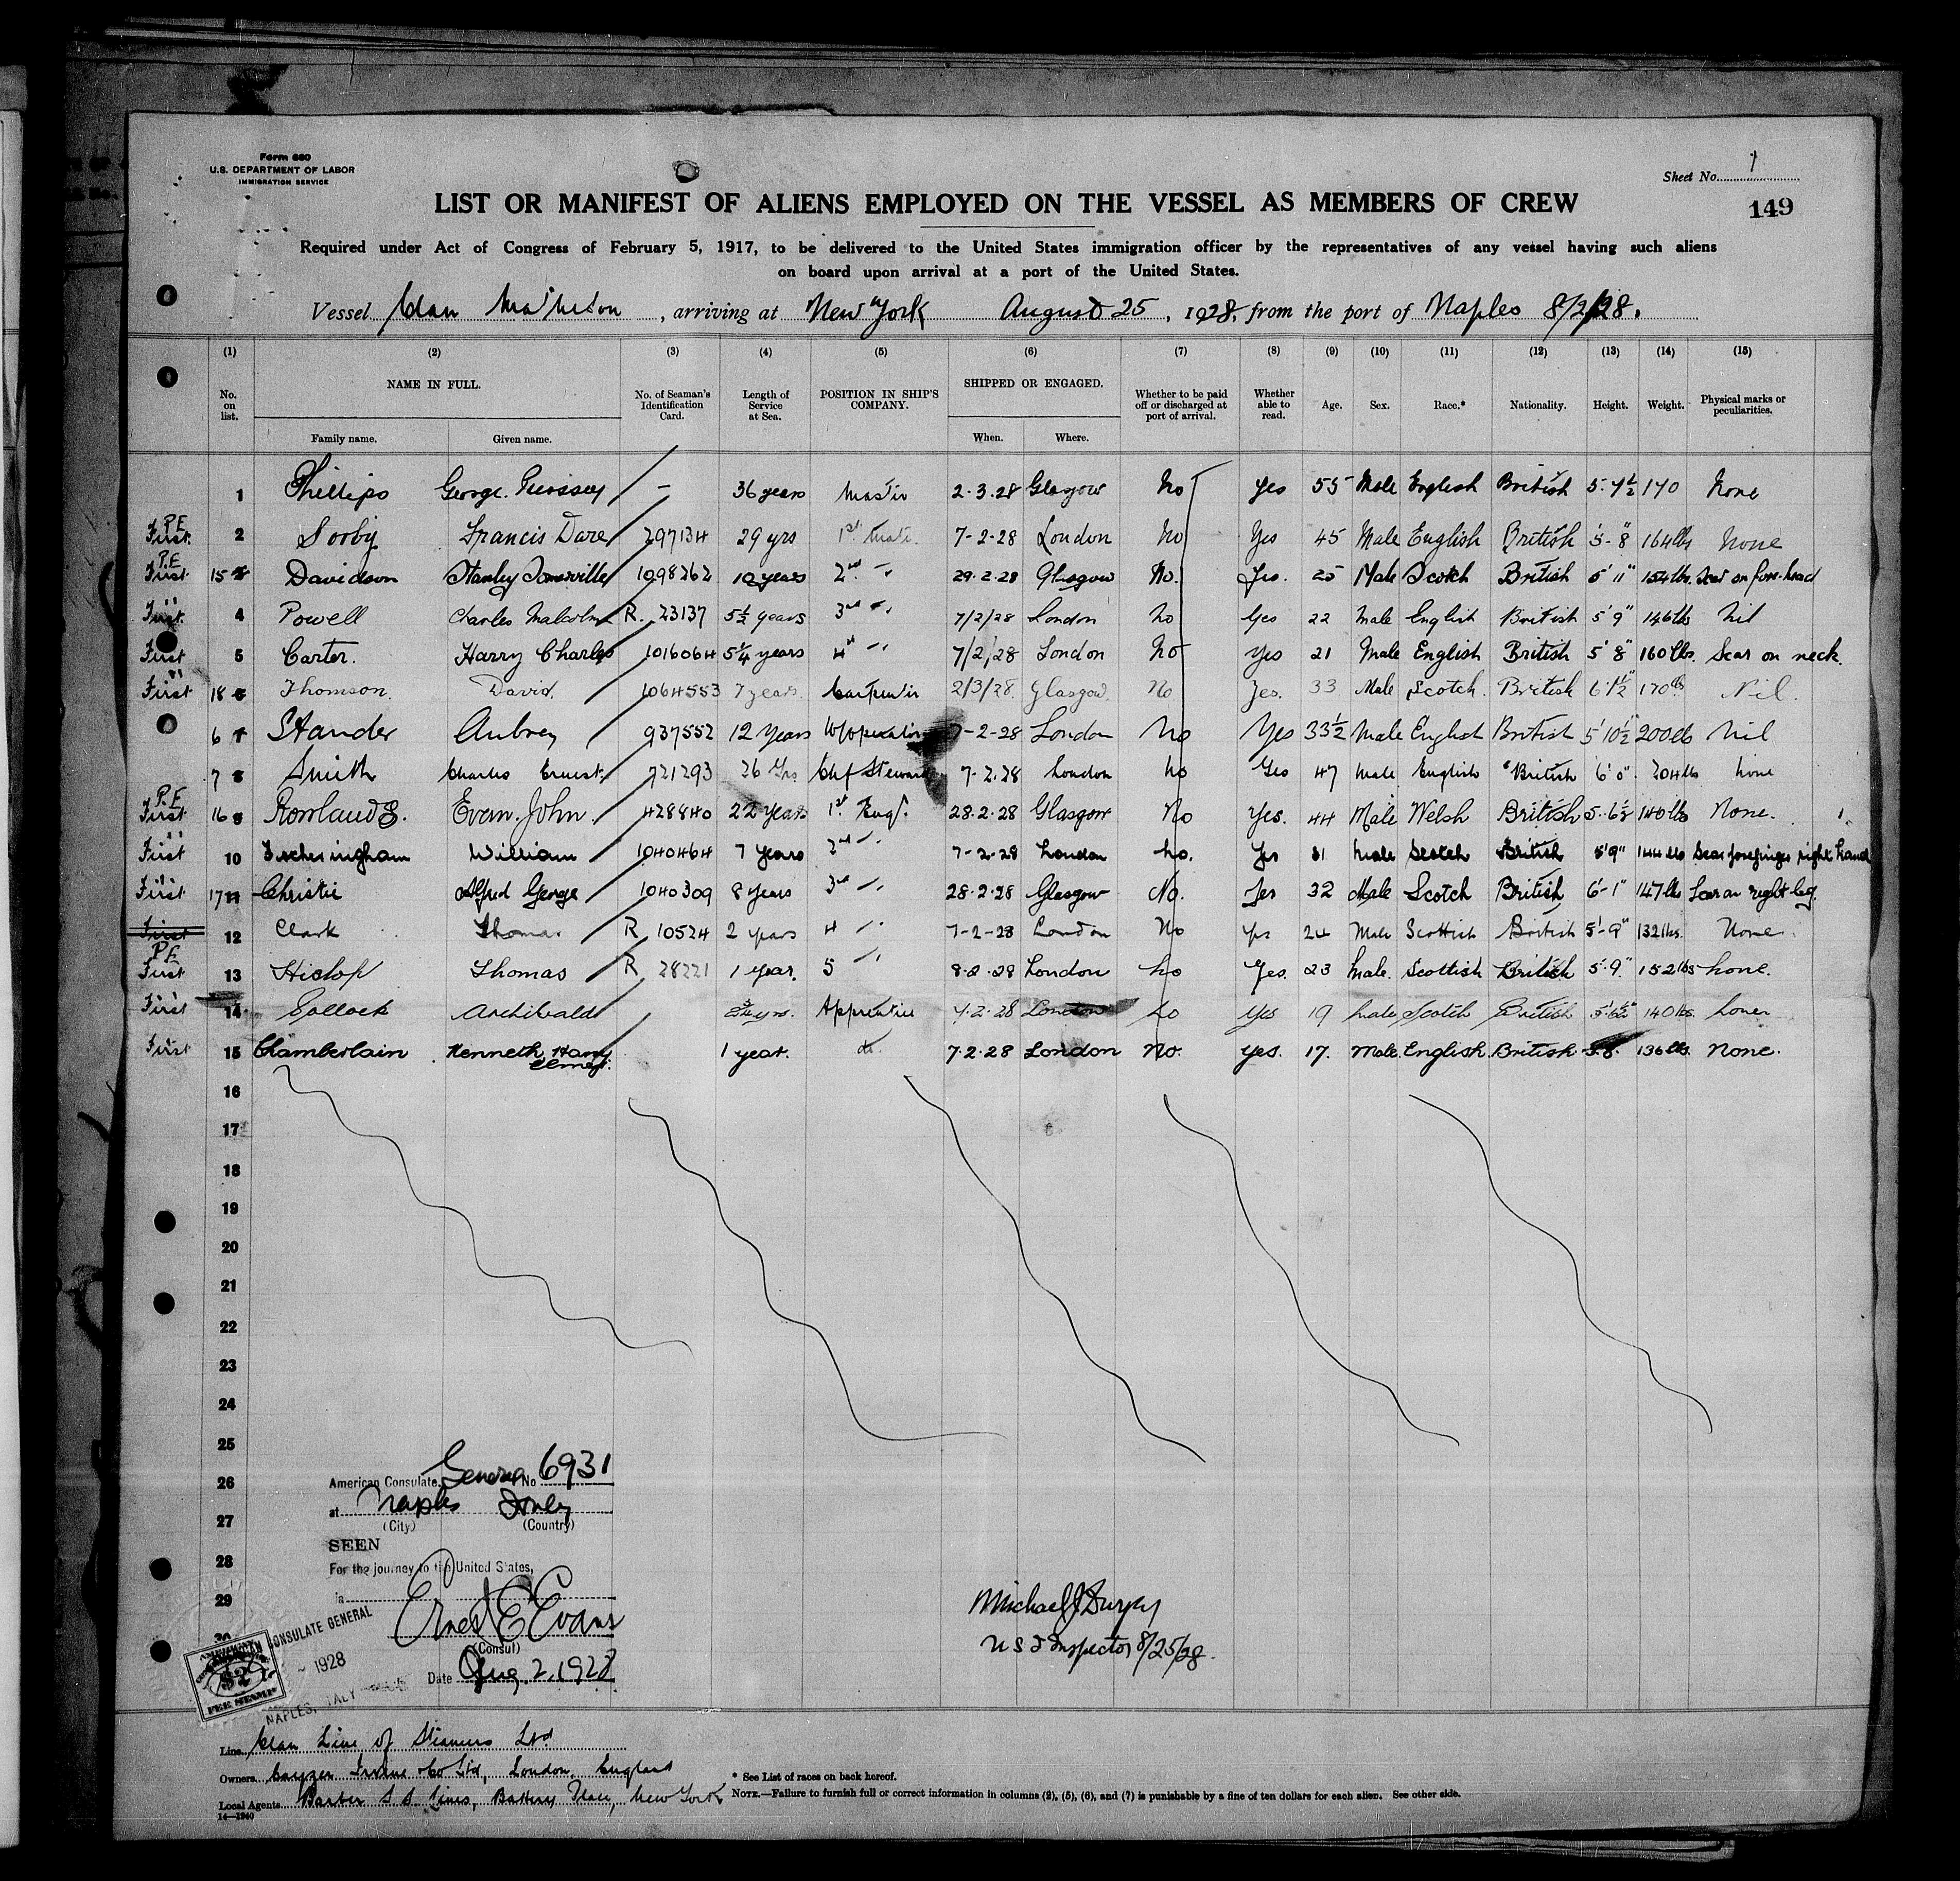 Form 680
U.S. DEPARTMENT OF LABOR
IMMIGRATION SERVICE
Sheet No. 1
149
LIST OR MANIFEST OF ALIENS EMPLOYED ON THE VESSEL AS MEMBERS OF CREW
Required under Act of Congress of February 5, 1917, to be delivered to the United States immigration officer by the representatives of any vessel having such aliens
on board upon arrival at a port of the United States.
Vessel Clan Matheson, arriving at New York August 25, 1928, from the port of Naples 8/2/28.
(1) (2) (3) (4) (5) (6) (7) (8) (9) (10) (11) (12) (13) (14) (15)
No. on list. NAME IN FULL. Family name. Given name. No. of Seaman's Identification Card. Length of Service at Sea. POSITION IN SHIP'S COMPANY. SHIPPED OR ENGAGED. When. Where. Whether to be paid off or discharged at port of arrival. Whether able to read. Age. Sex. Race.* Nationality. Height. Weight. Physical marks or peculiarities.
1 Phillips George - 36 years Master 2.3.28 Glasgow No Yes 55 Male English British 5.7½ 170 None
P.E. First 2 Sorby Francis Dare 297134 29 yrs 1st Mate 7-2-28 London No Yes 45 Male English British 5-8" 164lbs None
P.E. First 15 Davidson Stanley Somerville 1098262 10 years 2nd " 29.2.28 Glasgow No. Yes. 25 Male Scotch British 5'11" 154lbs. Scar on fore-head
First 4 Powell Charles Malcolm R. 23137 5½ years 3rd " 7/2/28 London No Yes 22 Male English British 5'9" 146lb Nil
First 5 Carter. Harry Charles 1016064 5¼ years 4th " 7/2/28 London No Yes 21 Male English British 5'8" 160lbs. Scar on neck.
First 18 Thomson. David. 1064553 7 years. Carpenter 2/3/28. Glasgow. No Yes. 33 Male Scotch. British 6'1½" 170lbs Nil.
6 Stander Aubrey 937552 12 Years W/Operator 7-2-28 London No Yes 33½ Male English British 5'10½" 200lb Nil
7 Smith Charles Ernest 721293 26 Yrs Chf Steward 7.2.28 London No Yes 47 Male English British 6'0" 204lbs None
P.E. First 16 Rowlands. Evan John. 428840 22 Years 1st Eng. 28.2.28 Glasgow No Yes. 44 Male Welsh British 5.6½ 140lbs None.
First 10 William 1040464 7 years 2nd " 7-2-28 London No. Yes 31 Male Scotch British 5'9" 144lb Scar forefinger right hand
First 17 Christie Alfred George 1040309 8 years 3rd " 28.2.28 Glasgow No. Yes 32 Male Scotch British 6'-1" 147lbs Scar on right leg.
First 12 Clark Thomas R 10524 2 years 4 " 7-2-28 London No Yes 24 Male Scottish British 5'-9" 132lbs. None
P.E. First 13 Hislop Thomas R 28221 1 year. 5 " 8.2.28 London No Yes. 23 Male. Scottish British 5'.9" 152lbs None.
First 14 Archibald Apprentice 7.2.28 London No Yes 19 Male Scotch British 5'.6½" 140lbs. None
First 15 Chamberlain Kenneth Harry Ernest. 1 year. do. 7.2.28 London No. Yes. 17. Male. English. British 5.8. 136lbs. None.
16
17
18
19
20
21
22
23
24
25
26
27
28
29
30
American Consulate General No 6931
at Naples Italy
(City) (Country)
SEEN
For the journey to the United States,
Ernest E Evans
(Consul)
Date Aug. 2. 1928
AMERICAN CONSULATE GENERAL
1928
NAPLES, ITALY
$2
FEE STAMP
U S I Inspector 8/25/28.
Line Clan Line of Steamers Ltd
Owners Cayzer Irvine & Co Ltd, London, England
Local Agents Barber S.S. Lines, Battery Place, New York
14—1240
* See List of races on back hereof.
NOTE.—Failure to furnish full or correct information in columns (2), (5), (6), and (7) is punishable by a fine of ten dollars for each alien. See other side.